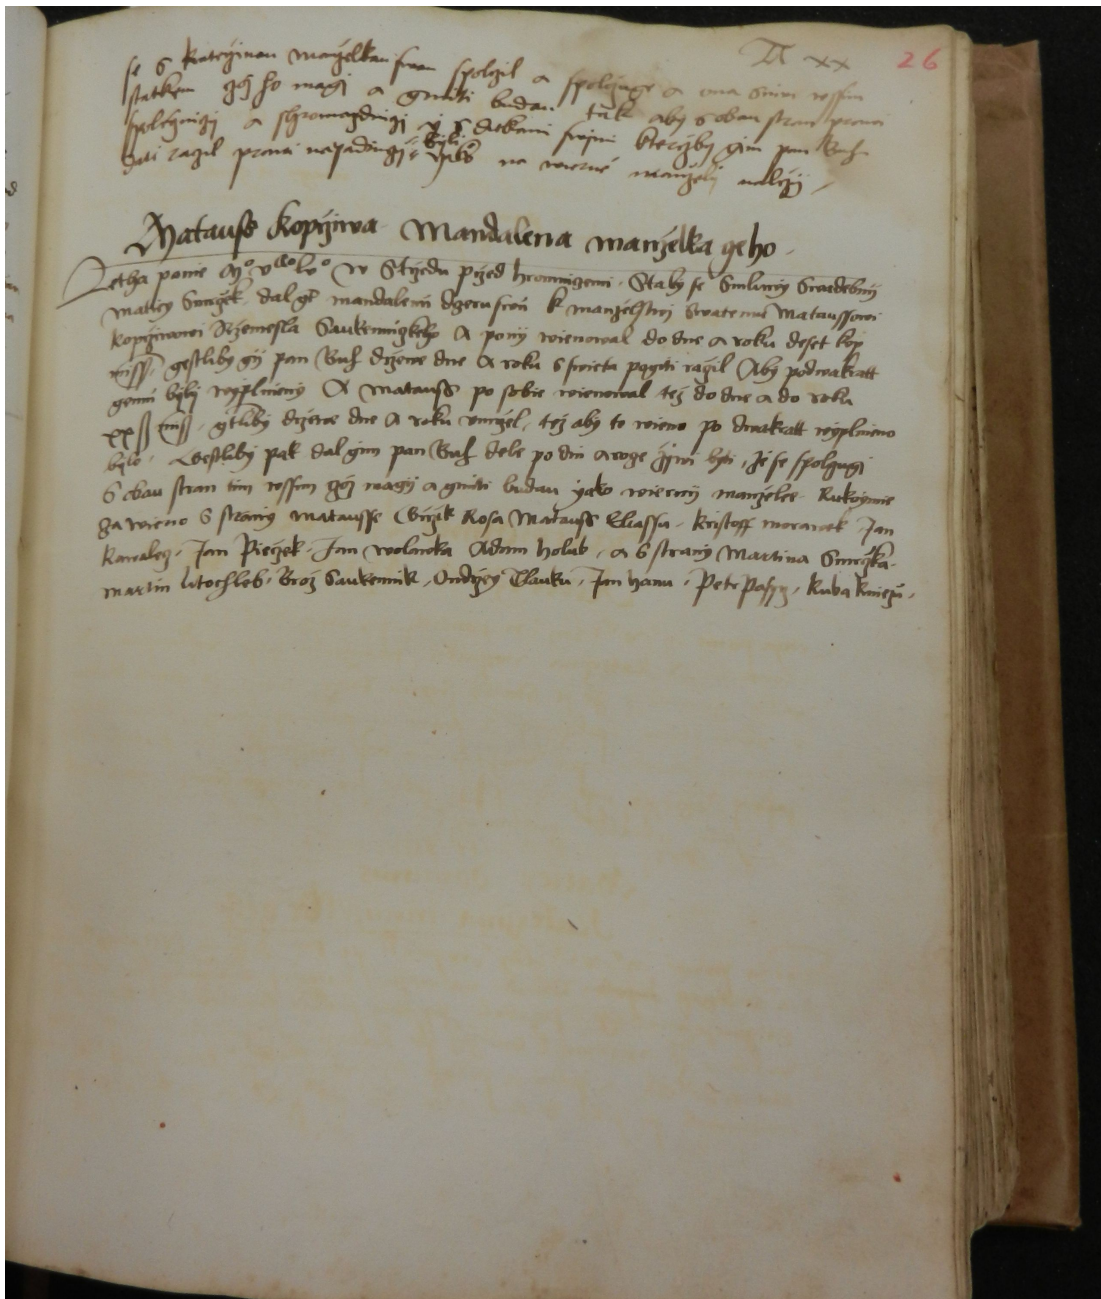 A xx 26
se s kateržinau manželkau swau spolčil a spolčuge a ona s nim wssim
statkem což ho magj a gmiti budau tak aby s obau stran prawi
spolčnijcy a shromazdnijcy y s dietkami swymi kterzyby gim pan Buoh
dati račil prawi nápadnijcy byli yakž na wierné manžely náležij /
Matauss Kopržiwa Mandalena manželka geho
Letha panie Mo vCo lvo w Strzedu przed hromnicemi Staly se Smluwy Swadebnij
Matiey Smržek dal gt mandalenu dceru swu k manželstwj Swatemu Mataussowi
Kopržiwowi Rzemesla Saukennického A po nij wienowal do dne a roku deset kop
miss, gestliby gij pan Buoh držewe dne A roku s swieta pogiti račil Aby podwakratt
gemu byly wyplnieny A Matauss po sobie wienowal též do dne a do roku
xx ss miss, gtliby držewe dne A roku umrzel, též aby to wieno po dwakratt wyplnieno
bylo, Gestliby pak dal gim pan Buoh dele po dni a roce žiwi byti, že se spolčugj
s obau stran tim wssim což magij a gmiti budau yako wiernij manželee Rukoymie
za wieno s strany Matausse Girzik Rosa Matauss Eliassu, Kristoff morawek Jan
Kowalcz, Jan Pieczek, Jan wolawka Adam holub, a s strany Martina Smrzka
martin litochleb, Brož Saukennik, Ondržey Clauku, Jan hanu, Petr Passy, Kuba Knieži,